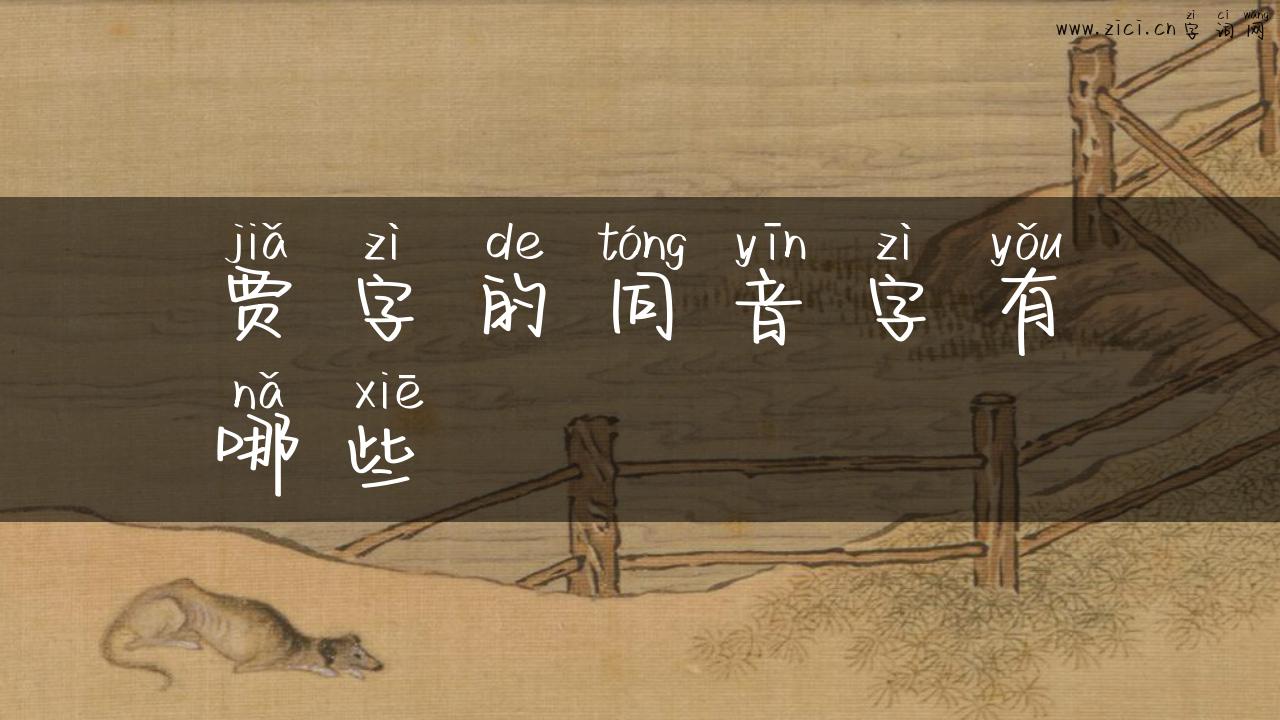 zì cí wǎng
www.zici.cn 字词网
jiǎ zì de tóng yīn zì yǒu
贾字的同音字有
nǎ xiē
哪些